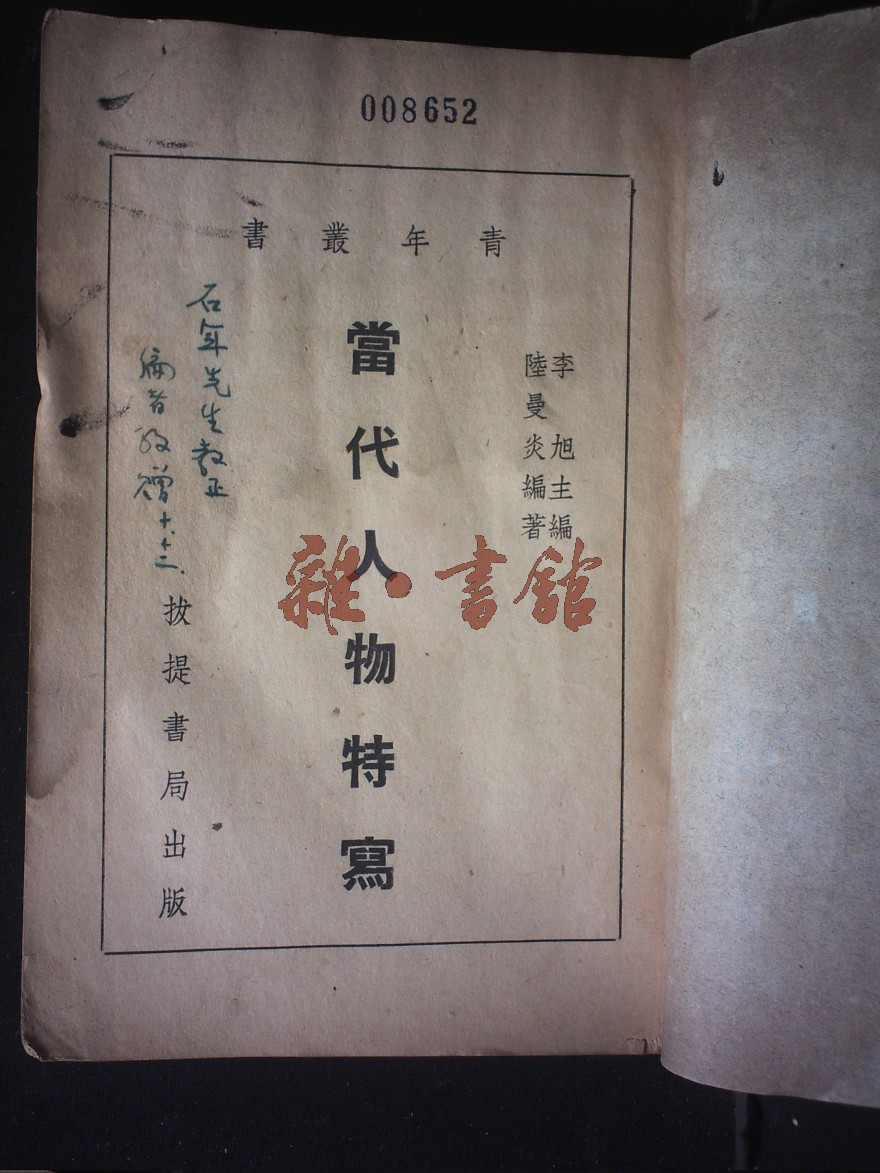 008652
青年叢書
李旭主編
陸曼炎編著
當代人物特寫
石年先生教正
編者敬贈 十.十二.
拔提書局出版
雜·書館